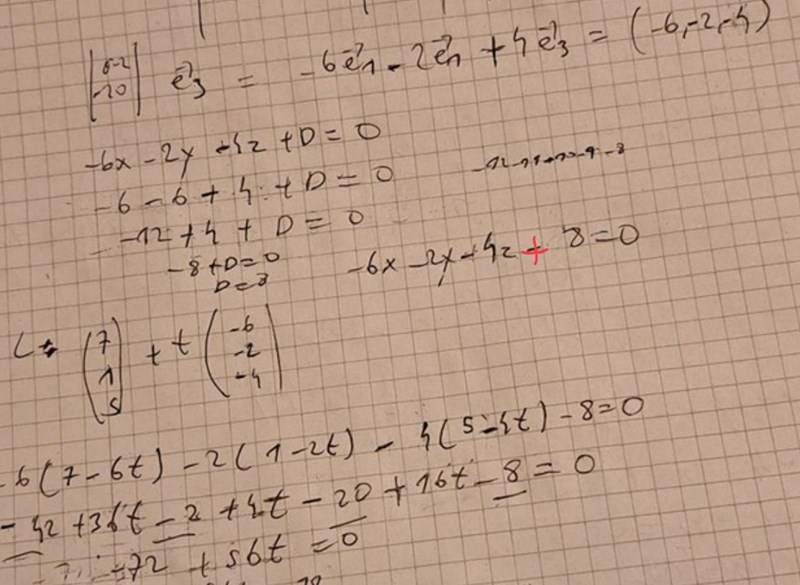 |6-2 -20| e⃗3 = -6e⃗1 - 2e⃗1 + 4e⃗3 = (-6,-2,-4)
-6x - 2y - 4z + D = 0
-6 - 6 + 4 + D = 0
-12 + 4 + D = 0
-8 + D = 0
D = 8
-6x - 2y - 4z + 8 = 0
L: (7 1 5) + t (-6 -2 -4)
-6(7-6t) - 2(1-2t) - 4(5-4t) - 8 = 0
-42 + 36t - 2 + 4t - 20 + 16t - 8 = 0
-72 + 56t = 0